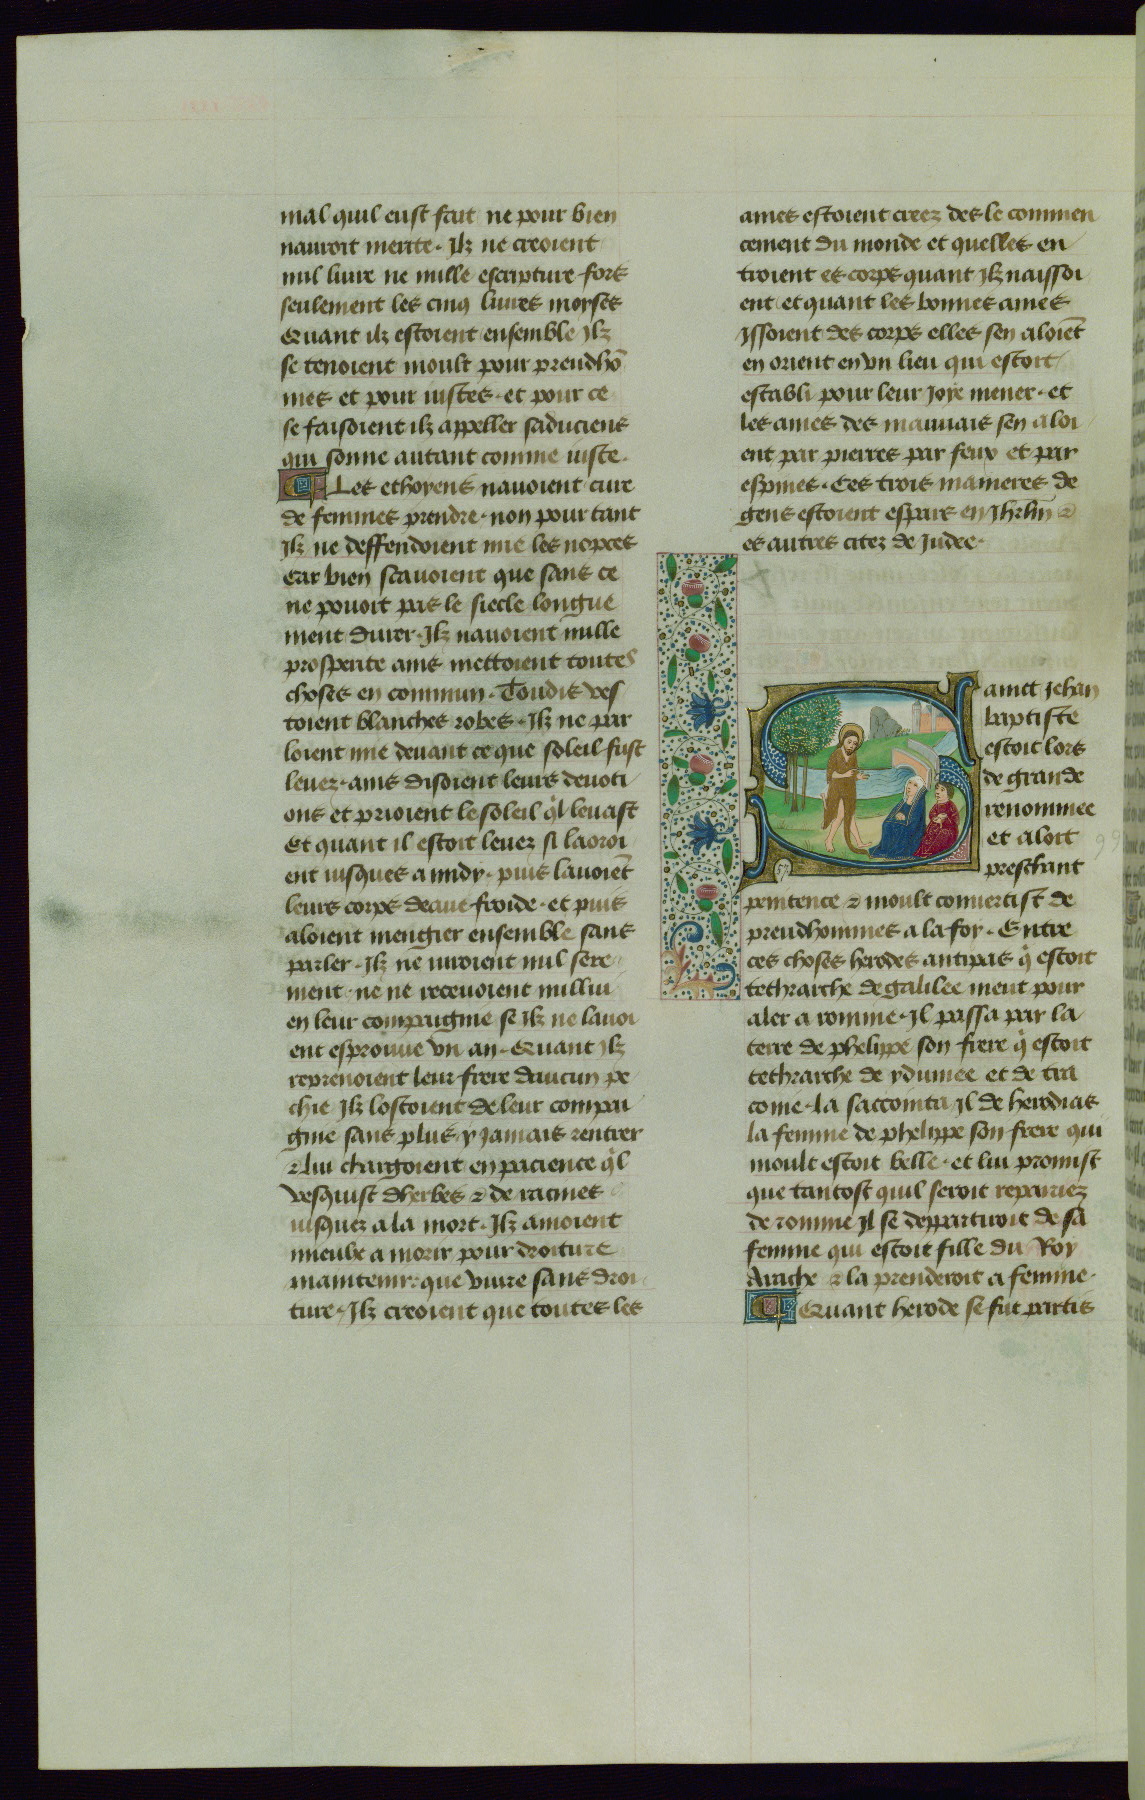 mal quil eust fait ne pour bien
nauroit merite. Ilz ne creoient
nul liure ne nulle escripture fors
seulement les cinq liures moyses
Quant ilz estoient ensemble Ilz
se tenoient moult pour preudhō
mes et pour iustes. et pour ce
se faisoient ilz appeller saduciens
qui sonne autant comme iuste.
Les ethoyens nauoient cure
de femmes prendre. non pour tant
Ilz ne deffendoient mie les nopces
Car bien scauoient que sans ce
ne pouoit pas le siecle longue
ment durer. Ilz nauoient nulle
prosperite ains mettoient toutes
choses en commun. Toudis ves
toient blanches robes. Ilz ne par
loient mie deuant ce que soleil fust
leuez. ains disoient leurs deuoti
ons et prioient le soleil ql leuast
Et quant il estoit leuez si laoroi
ent iusques a midy. puis lauoiēt
leurs corps deaue froide. et puis
aloient mengier ensemble sans
parler. Ilz ne iuroient nul sere
ment. ne ne receuoient nullui
en leur compaignie se Ilz ne lauoi
ent esprouue vn an. Quant Ilz
reprenoient leur frere daucun pe
chie Ilz lostoient de leur compai
gnie sans plus y Jamais rentrer
⁊ lui chargoient en pacience ql
vesquist dherbes ⁊ de racines
iusquez a la mort. Ilz amoient
mieulx a morir pour droiture
maintenir. que viure sans droi
ture. Ilz creoient que toutes les
ames estoient creez des le commen
cement du monde et quelles en
troient es corps quant Ilz naissoi
ent. et quant les bonnes ames
Issoient des corps elles sen aloiēt
en orient en vn lieu qui estoit
establi pour leur Joye mener. et
les ames des mauuais sen aloi
ent par pierres par feux et par
espines. Ces trois manieres de
gens estoient espars en Jhrlm̄ ⁊
es autres citez de Judee.
Sainct Jehan
baptiste
estoit lors
de grande
renommee
et aloit
preschant
penitence ⁊ moult conuertist de
preudhommes a la foy. Entre
ces choses herodes antipas q estoit
tethrarche de galilee meut pour
aler a romme. Il passa par la
terre de phelippe son frere q estoit
tethrarche de ydumee et de tra
conie. la saccointa Il de herodias
la femme de phelippe son frere qui
moult estoit belle. et lui promist
que tantost quil seroit repairiez
de romme Il se departiroit de sa
femme qui estoit fille du Roy
⁊ la prenderoit a femme.
Quant herode se fut partis